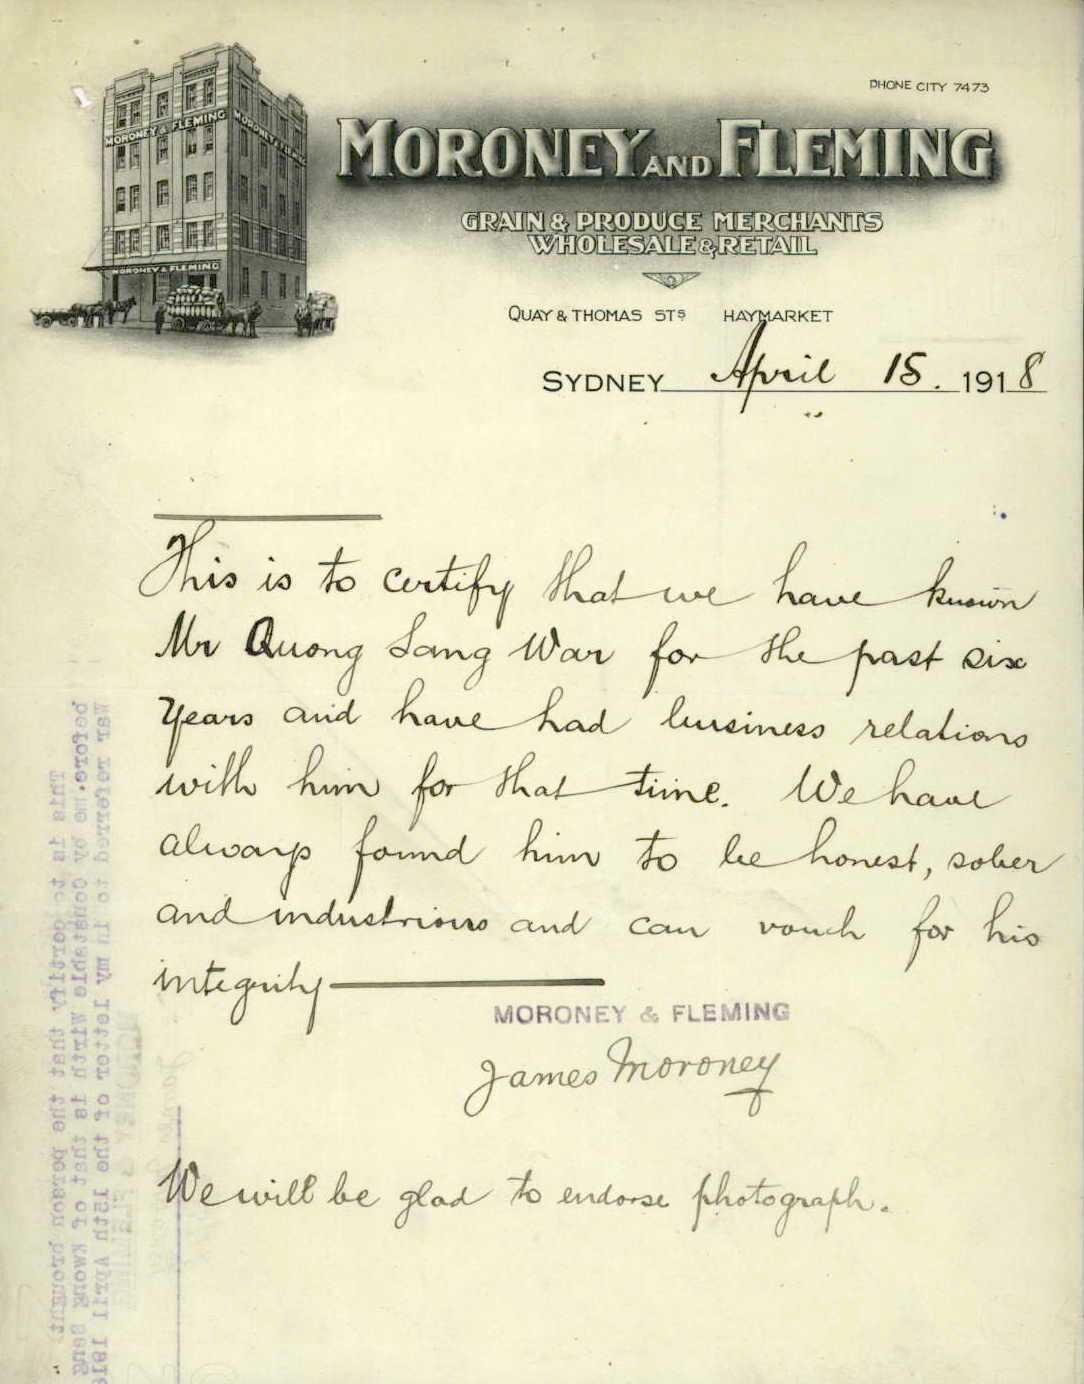 PHONE CITY 7473
MORONEY & FLEMING
MORONEY & FLEMING
MORONEY & FLEMING
MORONEY AND FLEMING
GRAIN & PRODUCE MERCHANTS
WHOLESALE & RETAIL
QUAY & THOMAS STS HAYMARKET
SYDNEY April 15. 1918
This is to certify that we have known
Mr Quong Sang War for the past six
years and have had business relations
with him for that time. We have
always found him to be honest, sober
and industrious and can vouch for his
integrity
MORONEY & FLEMING
James Moroney
We will be glad to endorse photograph.
This is to certify that the person brought
before me by Constable Wirth is that of Kwong Sang
War referred to in my letter of the 15th April 1918